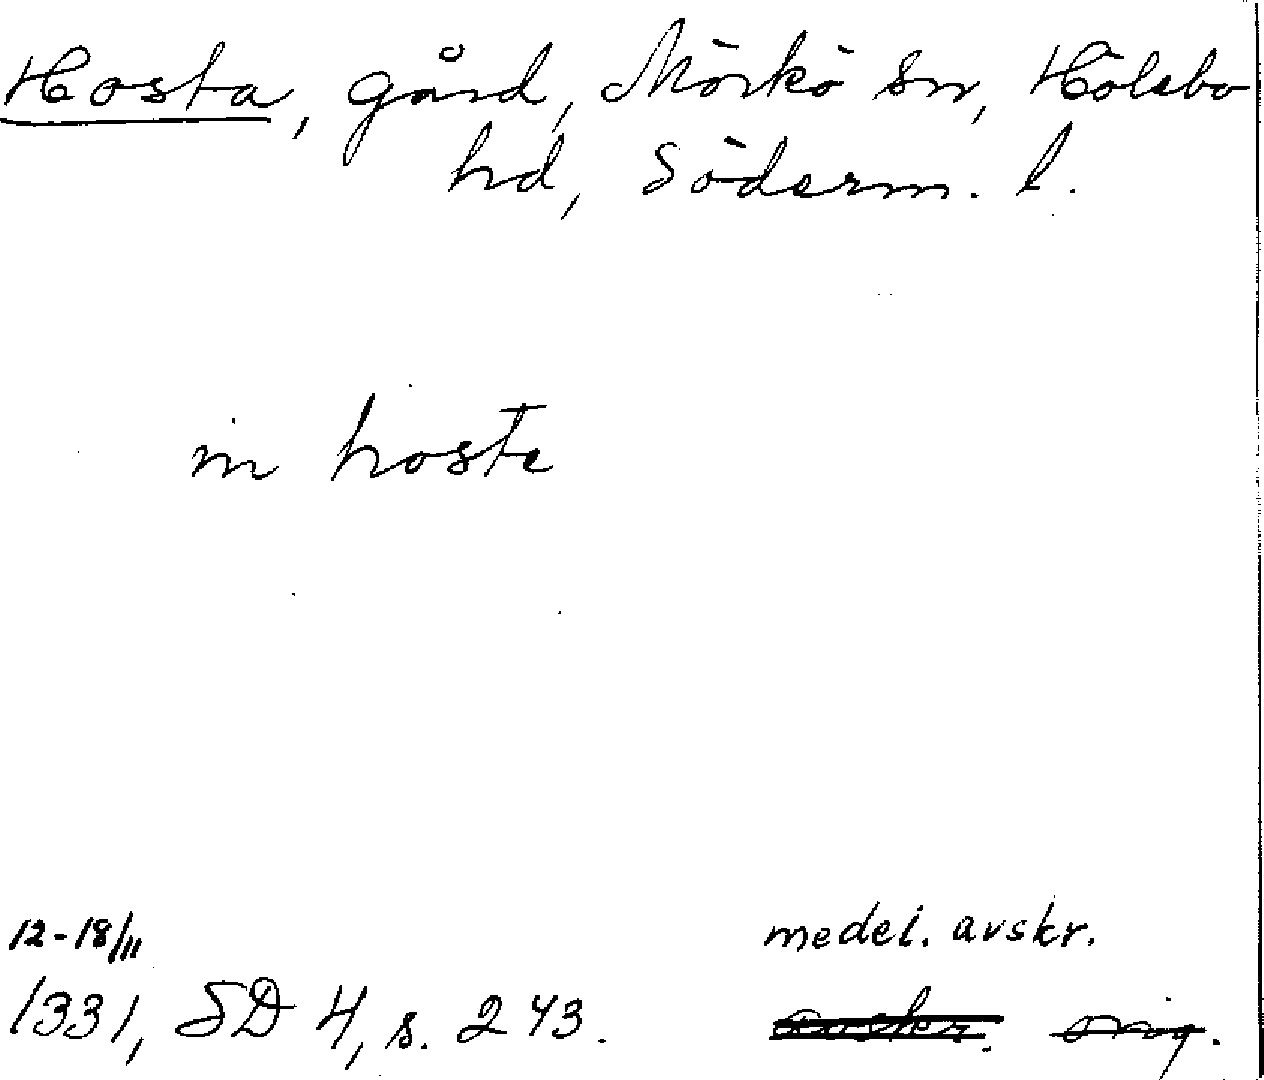 Hosta, gård, Mörkö sn, Hölebo
hd, Söderm. l.
in hoste
12-18/11 medel. avskr.
1331, SD 4, s. 243. avskr. orig.